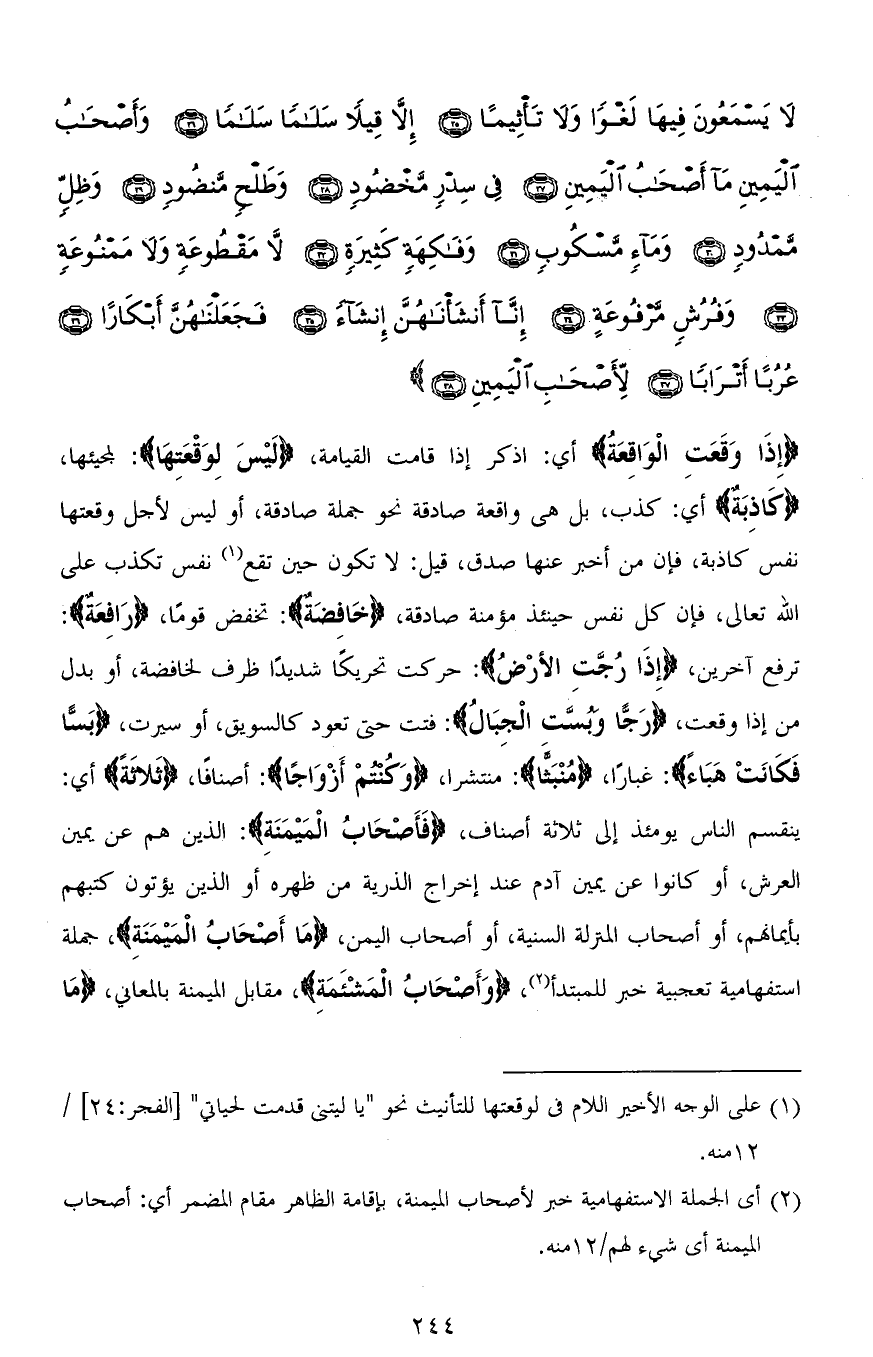 لَا يَسْمَعُونَ فِيهَا لَغْوًا وَلَا تَأْثِيمًا ۝٢٥ إِلَّا قِيلًا سَلَـٰمًا سَلَـٰمًا ۝٢٦ وَأَصْحَـٰبُ
ٱلْيَمِينِ مَآ أَصْحَـٰبُ ٱلْيَمِينِ ۝٢٧ فِى سِدْرٍ مَّخْضُودٍ ۝٢٨ وَطَلْحٍ مَّنضُودٍ ۝٢٩ وَظِلٍّ
مَّمْدُودٍ ۝٣٠ وَمَآءٍ مَّسْكُوبٍ ۝٣١ وَفَـٰكِهَةٍ كَثِيرَةٍ ۝٣٢ لَّا مَقْطُوعَةٍ وَلَا مَمْنُوعَةٍ
۝٣٣ وَفُرُشٍ مَّرْفُوعَةٍ ۝٣٤ إِنَّآ أَنشَأْنَـٰهُنَّ إِنشَآءً ۝٣٥ فَجَعَلْنَـٰهُنَّ أَبْكَارًا ۝٣٦
عُرُبًا أَتْرَابًا ۝٣٧ لِّأَصْحَـٰبِ ٱلْيَمِينِ ۝٣٨ ﴾
﴿إِذَا وَقَعَتِ الْوَاقِعَةُ﴾ أي: اذكر إذا قامت القيامة، ﴿لَيْسَ لِوَقْعَتِهَا﴾: لمجيئها،
﴿كَاذِبَةٌ﴾ أي: كذب، بل هى واقعة صادقة نحو جملة صادقة، أو ليس لأجل وقعتها
نفس كاذبة، فإن من أخبر عنها صدق، قيل: لا تكون حين تقع(١) نفس تكذب على
الله تعالى، فإن كل نفس حينئذ مؤمنة صادقة، ﴿خَافِضَةٌ﴾: تخفض قومًا، ﴿رَافِعَةٌ﴾:
ترفع آخرين، ﴿إِذَا رُجَّتِ الأَرْضُ﴾: حركت تحريكًا شديدًا ظرف لخافضة، أو بدل
من إذا وقعت، ﴿رَجًّا وَبُسَّتِ الْجِبَالُ﴾: فتت حتى تعود كالسويق، أو سيرت، ﴿بَسًّا
فَكَانَتْ هَبَاءً﴾: غبارًا، ﴿مُنْبَثًّا﴾: منتشرا، ﴿وَكُنْتُمْ أَزْوَاجًا﴾: أصنافًا، ﴿ثَلاثَةً﴾ أي:
ينقسم الناس يومئذ إلى ثلاثة أصناف، ﴿فَأَصْحَابُ الْمَيْمَنَةِ﴾: الذين هم عن يمين
العرش، أو كانوا عن يمين آدم عند إخراج الذرية من ظهره أو الذين يؤتون كتبهم
بأيمانهم، أو أصحاب المنزلة السنية، أو أصحاب اليمن، ﴿مَا أَصْحَابُ الْمَيْمَنَةِ﴾، جملة
استفهامية تعجبية خبر للمبتدأ(٢)، ﴿وَأَصْحَابُ الْمَشْئَمَةِ﴾، مقابل الميمنة بالمعاني، ﴿مَا
(١) على الوجه الأخير اللام فى لوقعتها للتأنيث نحو "يا ليتنى قدمت لحياتي" [الفجر:٢٤] /
١٢منه.
(٢) أى الجملة الاستفهامية خبر لأصحاب الميمنة، بإقامة الظاهر مقام المضمر أي: أصحاب
الميمنة أى شيء لهم/١٢منه.
٢٤٤